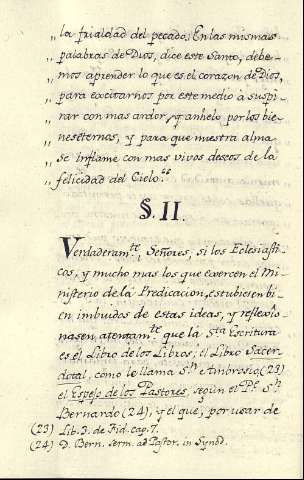 „ la frialdad del pecado. En las mismas
„ palabras de Dios, dice este Santo, debe-
„ mos aprender lo que es el corazon de Dios,
„ para excitarnos por este medio a suspi-
„ rar con mas ardor, y anhelo por los bie-
„ nes eternos, y para que nuestra alma
„ se inflame con mas vivos deseos de la
„ felicidad del Cielo.“
§. II.
Verdaderam.te, Señores, si los Eclesiasti-
cos, y mucho mas los que exercen el Mi-
nisterio de la Predicacion, estubiesen bi-
en imbuidos de estas ideas, y reflexio-
nasen atentam.te que la S.ta Escritura
es el Libro de los Libros, el Libro Sacer-
dotal, como le llama S.n Ambrosio, (23)
el Espejo de los Pastores, segun el P.e S.n
Bernardo (24), y el que, por usar de
(23) Lib. 3. de Fid. cap. 7.
(24) D. Bern. Serm. ad Pastor. in Synod.